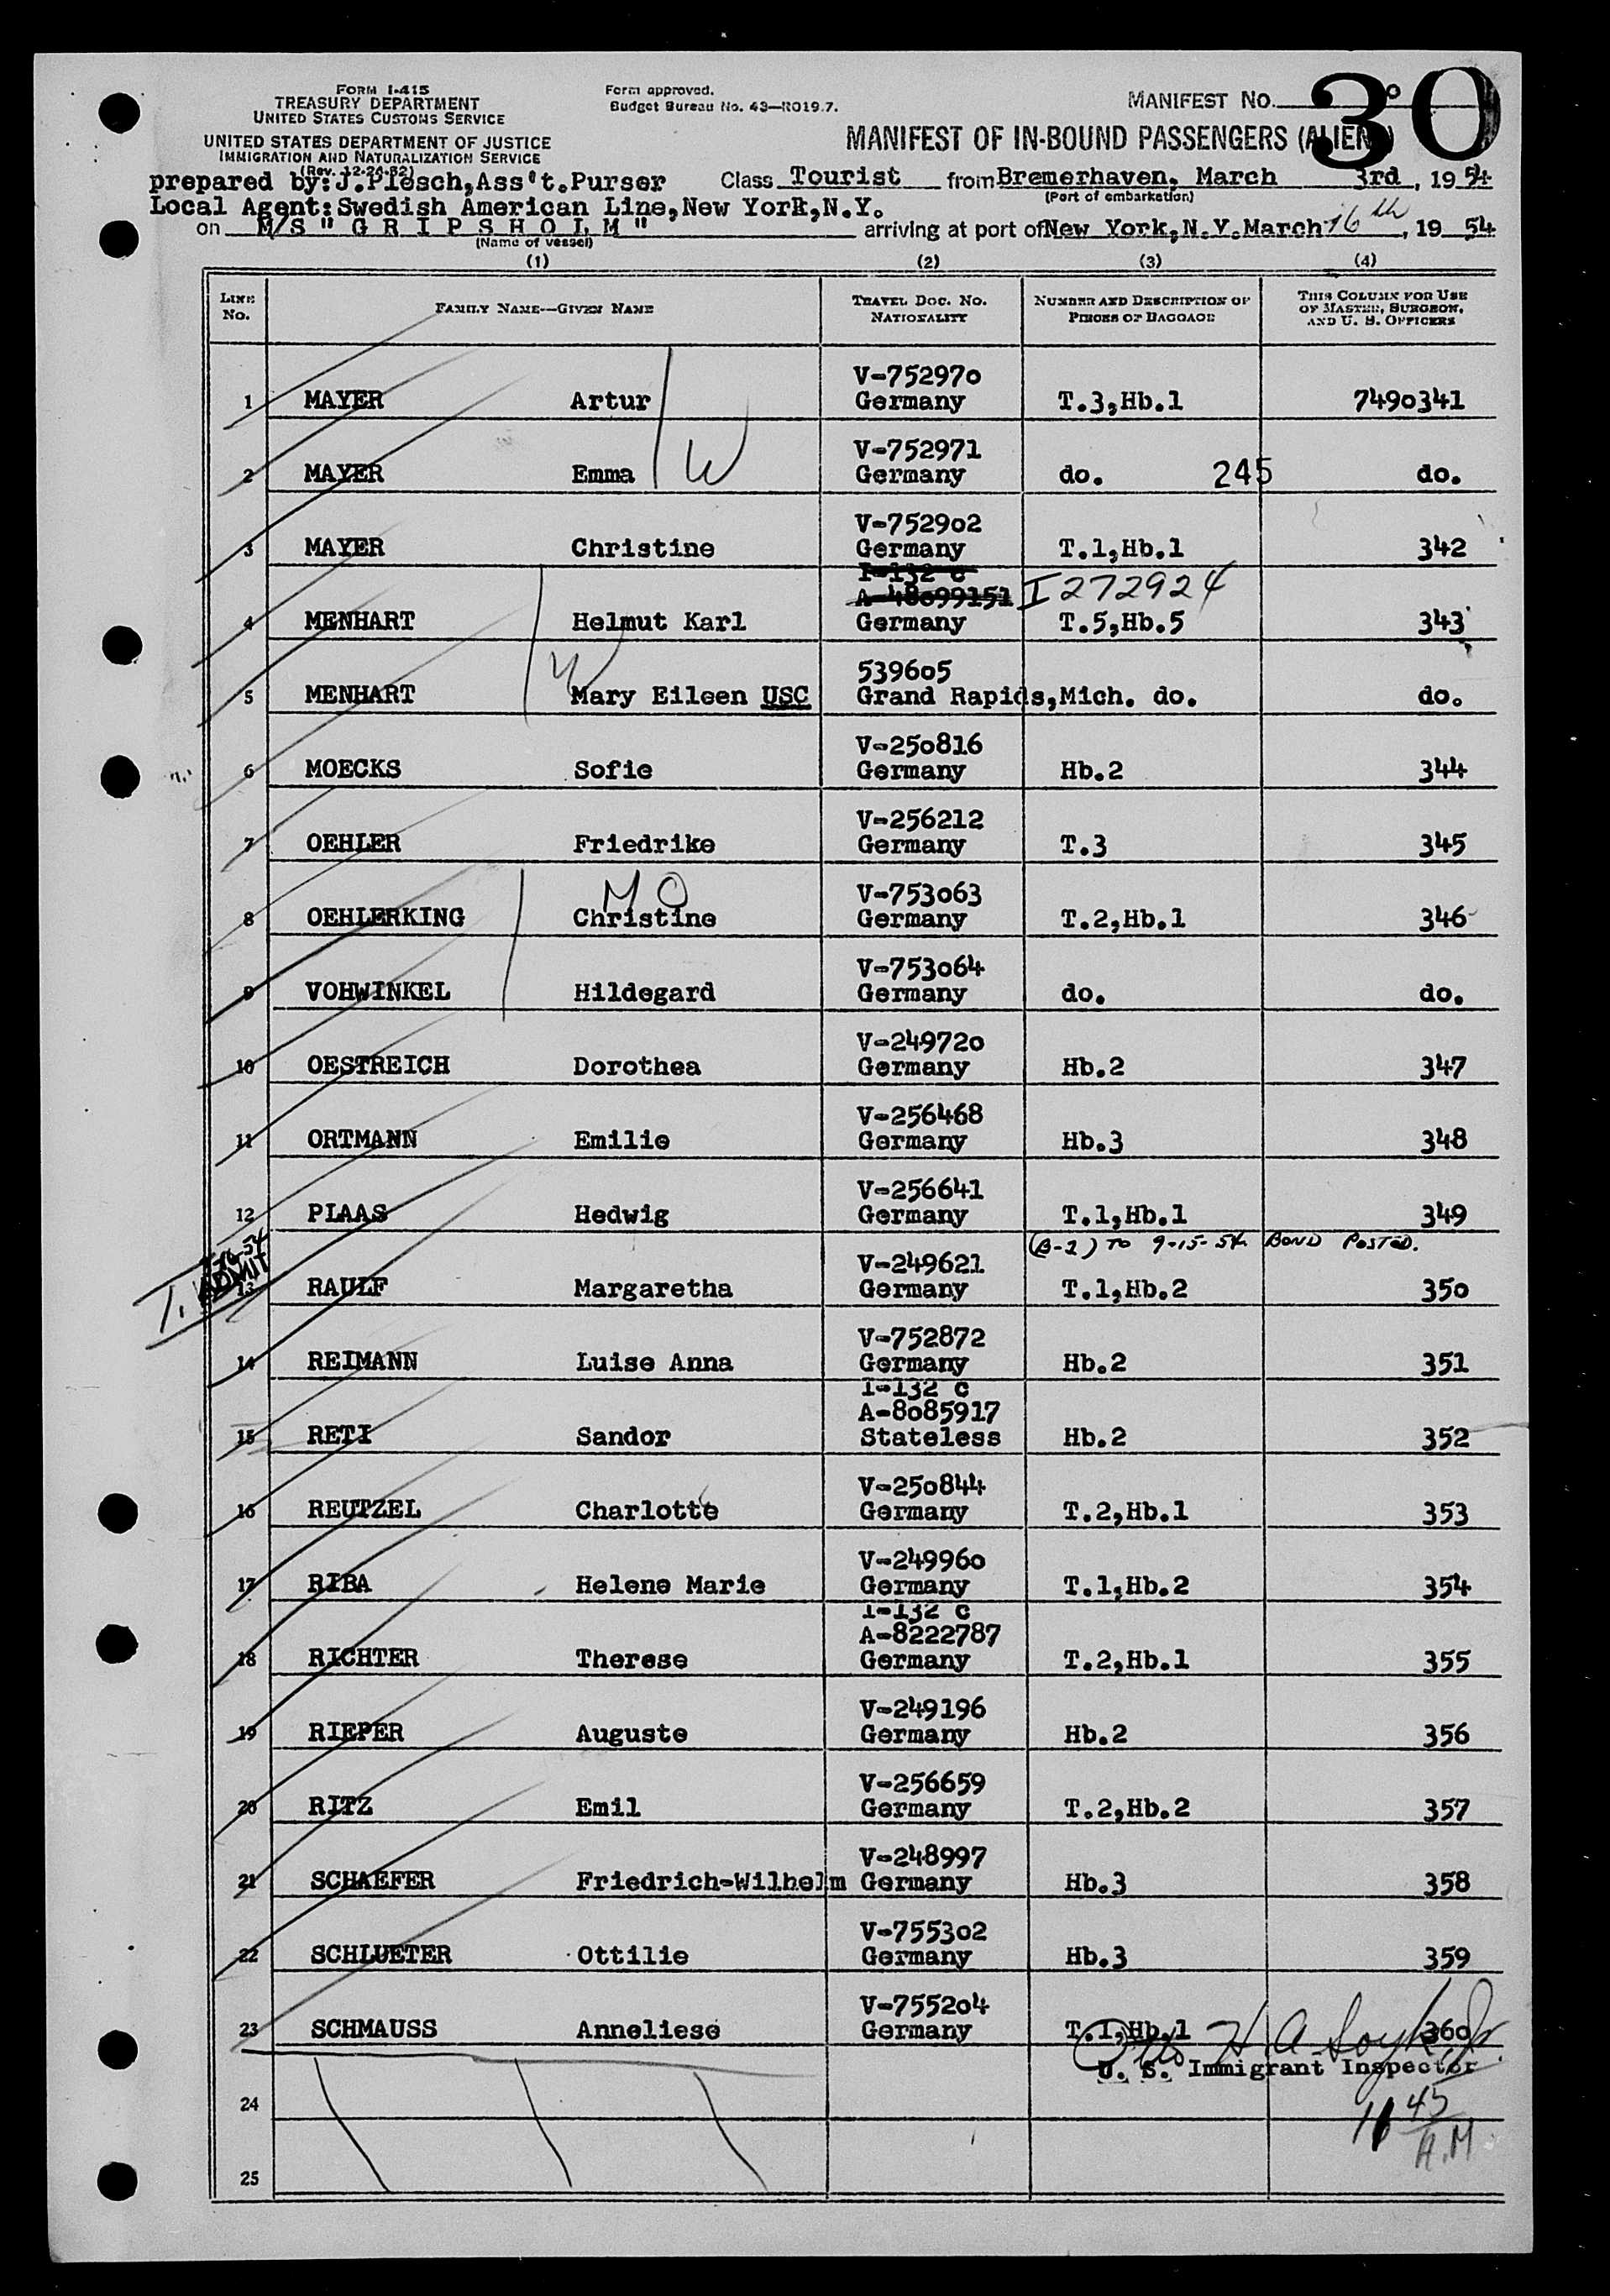 FORM I-415
TREASURY DEPARTMENT
UNITED STATES CUSTOMS SERVICE
UNITED STATES DEPARTMENT OF JUSTICE
IMMIGRATION AND NATURALIZATION SERVICE
(Rev. 12-24-52)
Form approved.
Budget Bureau No. 43—R019.7.
MANIFEST NO. 30
MANIFEST OF IN-BOUND PASSENGERS (ALIENS)
prepared by: J.Plesch, Ass't.Purser Class Tourist from Bremerhaven, March 3rd, 1954
(Port of embarkation)
Local Agent: Swedish American Line, New York, N.Y.
on M/S " G R I P S H O L M " arriving at port of New York, N.Y. March 16th, 19 54
(Name of vessel)
(1) (2) (3) (4)
LINE No. FAMILY NAME—GIVEN NAME TRAVEL DOC. NO. NATIONALITY NUMBER AND DESCRIPTION OF PIECES OF BAGGAGE THIS COLUMN FOR USE OF MASTER, SURGEON, AND U. S. OFFICERS
V-752970
1 MAYER Artur Germany T.3,Hb.1 7490341
W
V-752971
2 MAYER Emma Germany do. 245 do.
V-752902
3 MAYER Christine Germany T.1,Hb.1 342
I-132 c
A-48099151 I 272924
4 MENHART Helmut Karl Germany T.5,Hb.5 343
W
539605
5 MENHART Mary Eileen USC Grand Rapids,Mich. do. do.
V-250816
6 MOECKS Sofie Germany Hb.2 344
V-256212
7 OEHLER Friedrike Germany T.3 345
M O
V-753063
8 OEHLERKING Christine Germany T.2,Hb.1 346
V-753064
9 VOHWINKEL Hildegard Germany do. do.
V-249720
10 OESTREICH Dorothea Germany Hb.2 347
V-256468
11 ORTMANN Emilie Germany Hb.3 348
V-256641
12 PLAAS Hedwig Germany T.1,Hb.1 349
(B-2) TO 9-15-54 BOND POSTED.
ADMIT
V-249621
13 RAULF Margaretha Germany T.1,Hb.2 350
V-752872
14 REIMANN Luise Anna Germany Hb.2 351
I-132 c
A-8085917
15 RETI Sandor Stateless Hb.2 352
V-250844
16 REUTZEL Charlotte Germany T.2,Hb.1 353
V-249960
17 RIBA Helene Marie Germany T.1,Hb.2 354
I-132 c
A-8222787
18 RICHTER Therese Germany T.2,Hb.1 355
V-249196
19 RIEPER Auguste Germany Hb.2 356
V-256659
20 RITZ Emil Germany T.2,Hb.2 357
V-248997
21 SCHAEFER Friedrich-Wilhelm Germany Hb.3 358
V-755302
22 SCHLUETER Ottilie Germany Hb.3 359
V-755204
23 SCHMAUSS Anneliese Germany T.1,Hb.1 360
U. S. Immigrant Inspector
24
11 45
A.M
25